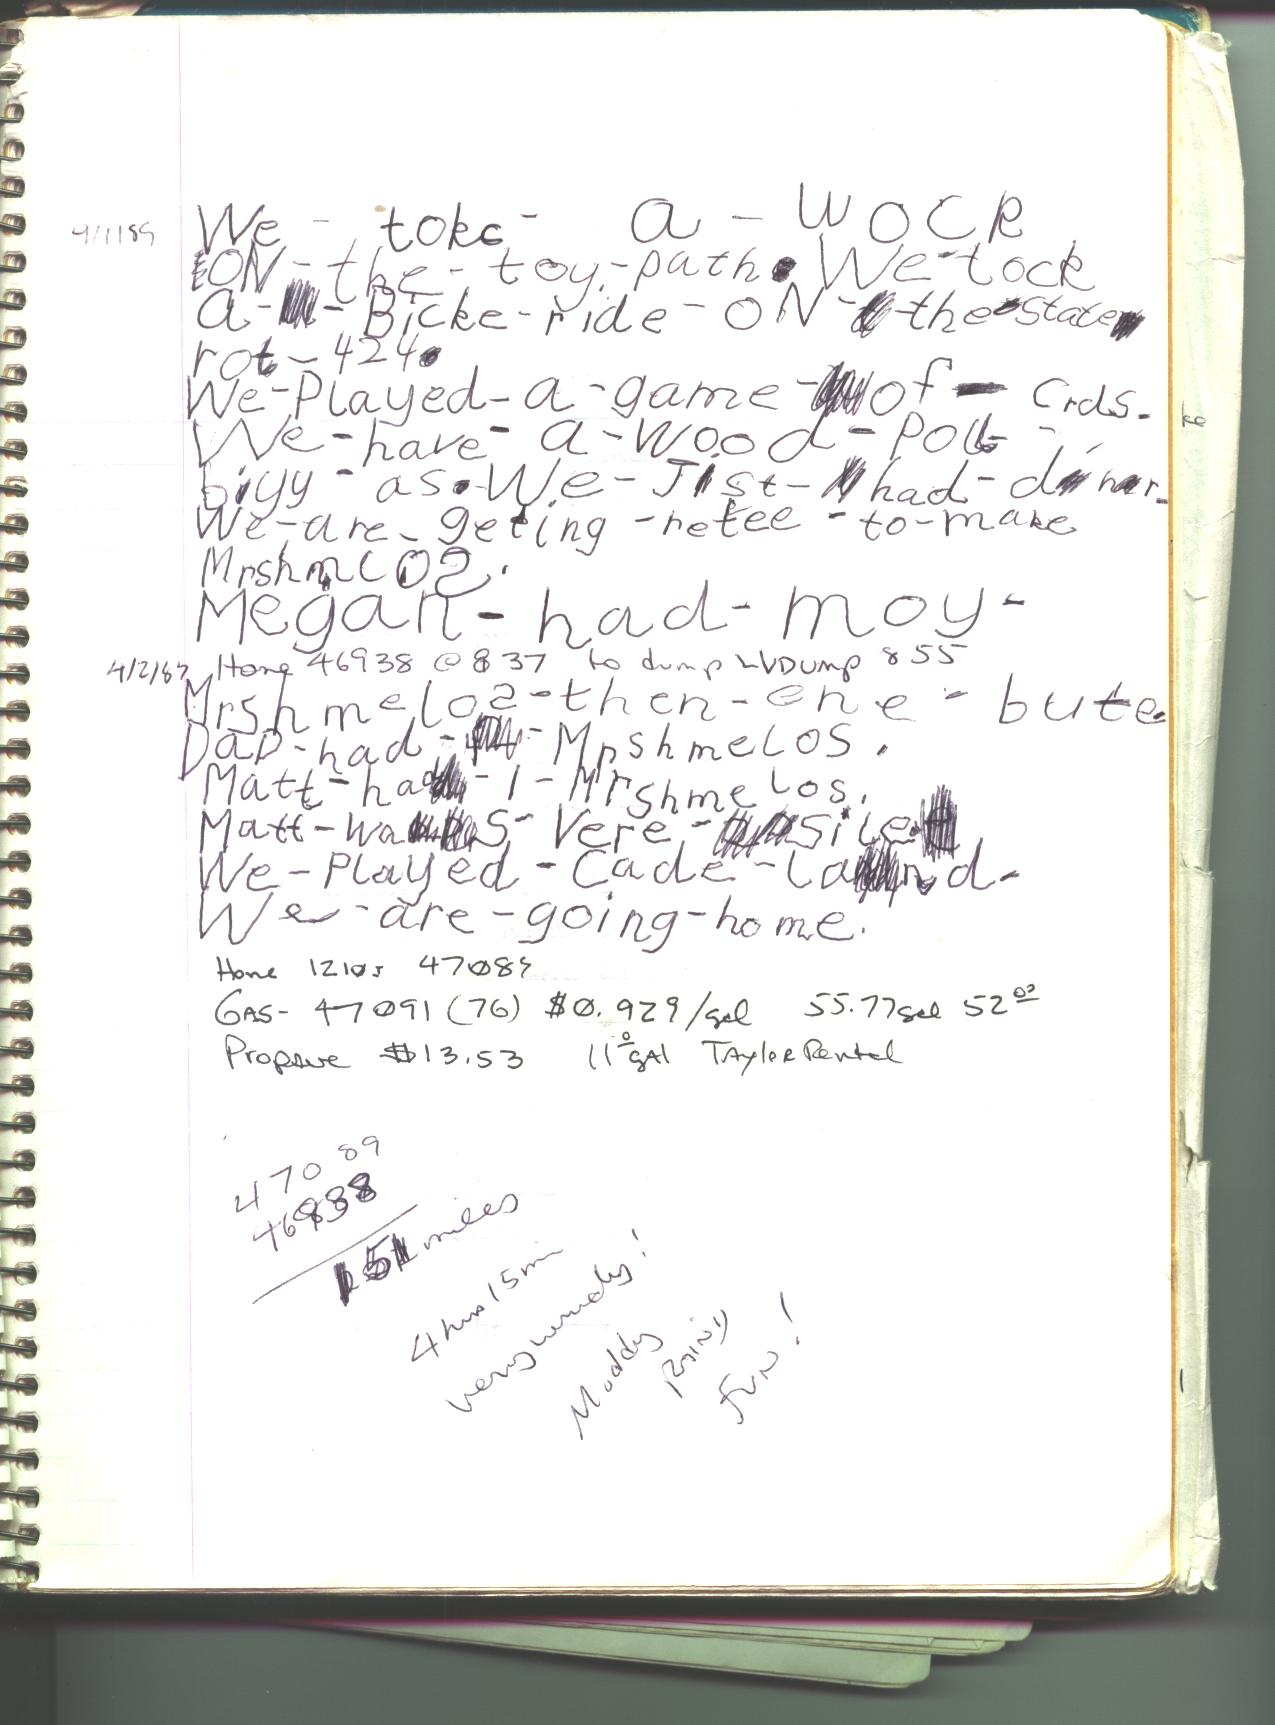 4/1/89 We - toke - a - wock
ON - the - toy - path. We - tock
a - Bicke - ride - ON - the - State
rot - 424.
We - Played - a - game - of - Crds.
We - have - a - Wood - Poll -
biyy - as. We - Jist - had - dinar.
We - are - geting - retee - to - make
MrshmlO2.
Megan - had - moy -
4/2/89 Home 46938 @ 837 to dump LVDump 855
Mrshmelo2 - then - ene - bute
DaD - had - 4 - MrshmeLOS.
Matt - had - 1 - Mrshmelos.
Matt - was - Vere - sile
We - Played - Cade - Land.
We - are - going - home.
Home 1210s 47089
GAS - 47091 (76) $0.929/gal 55.77gal 52⁰⁰
Propane $13.53 11⁰ gAl Taylor Rental
47089
46938
151 miles
4 hrs 15 min
very windy!
Muddy
Rainy
Fun!